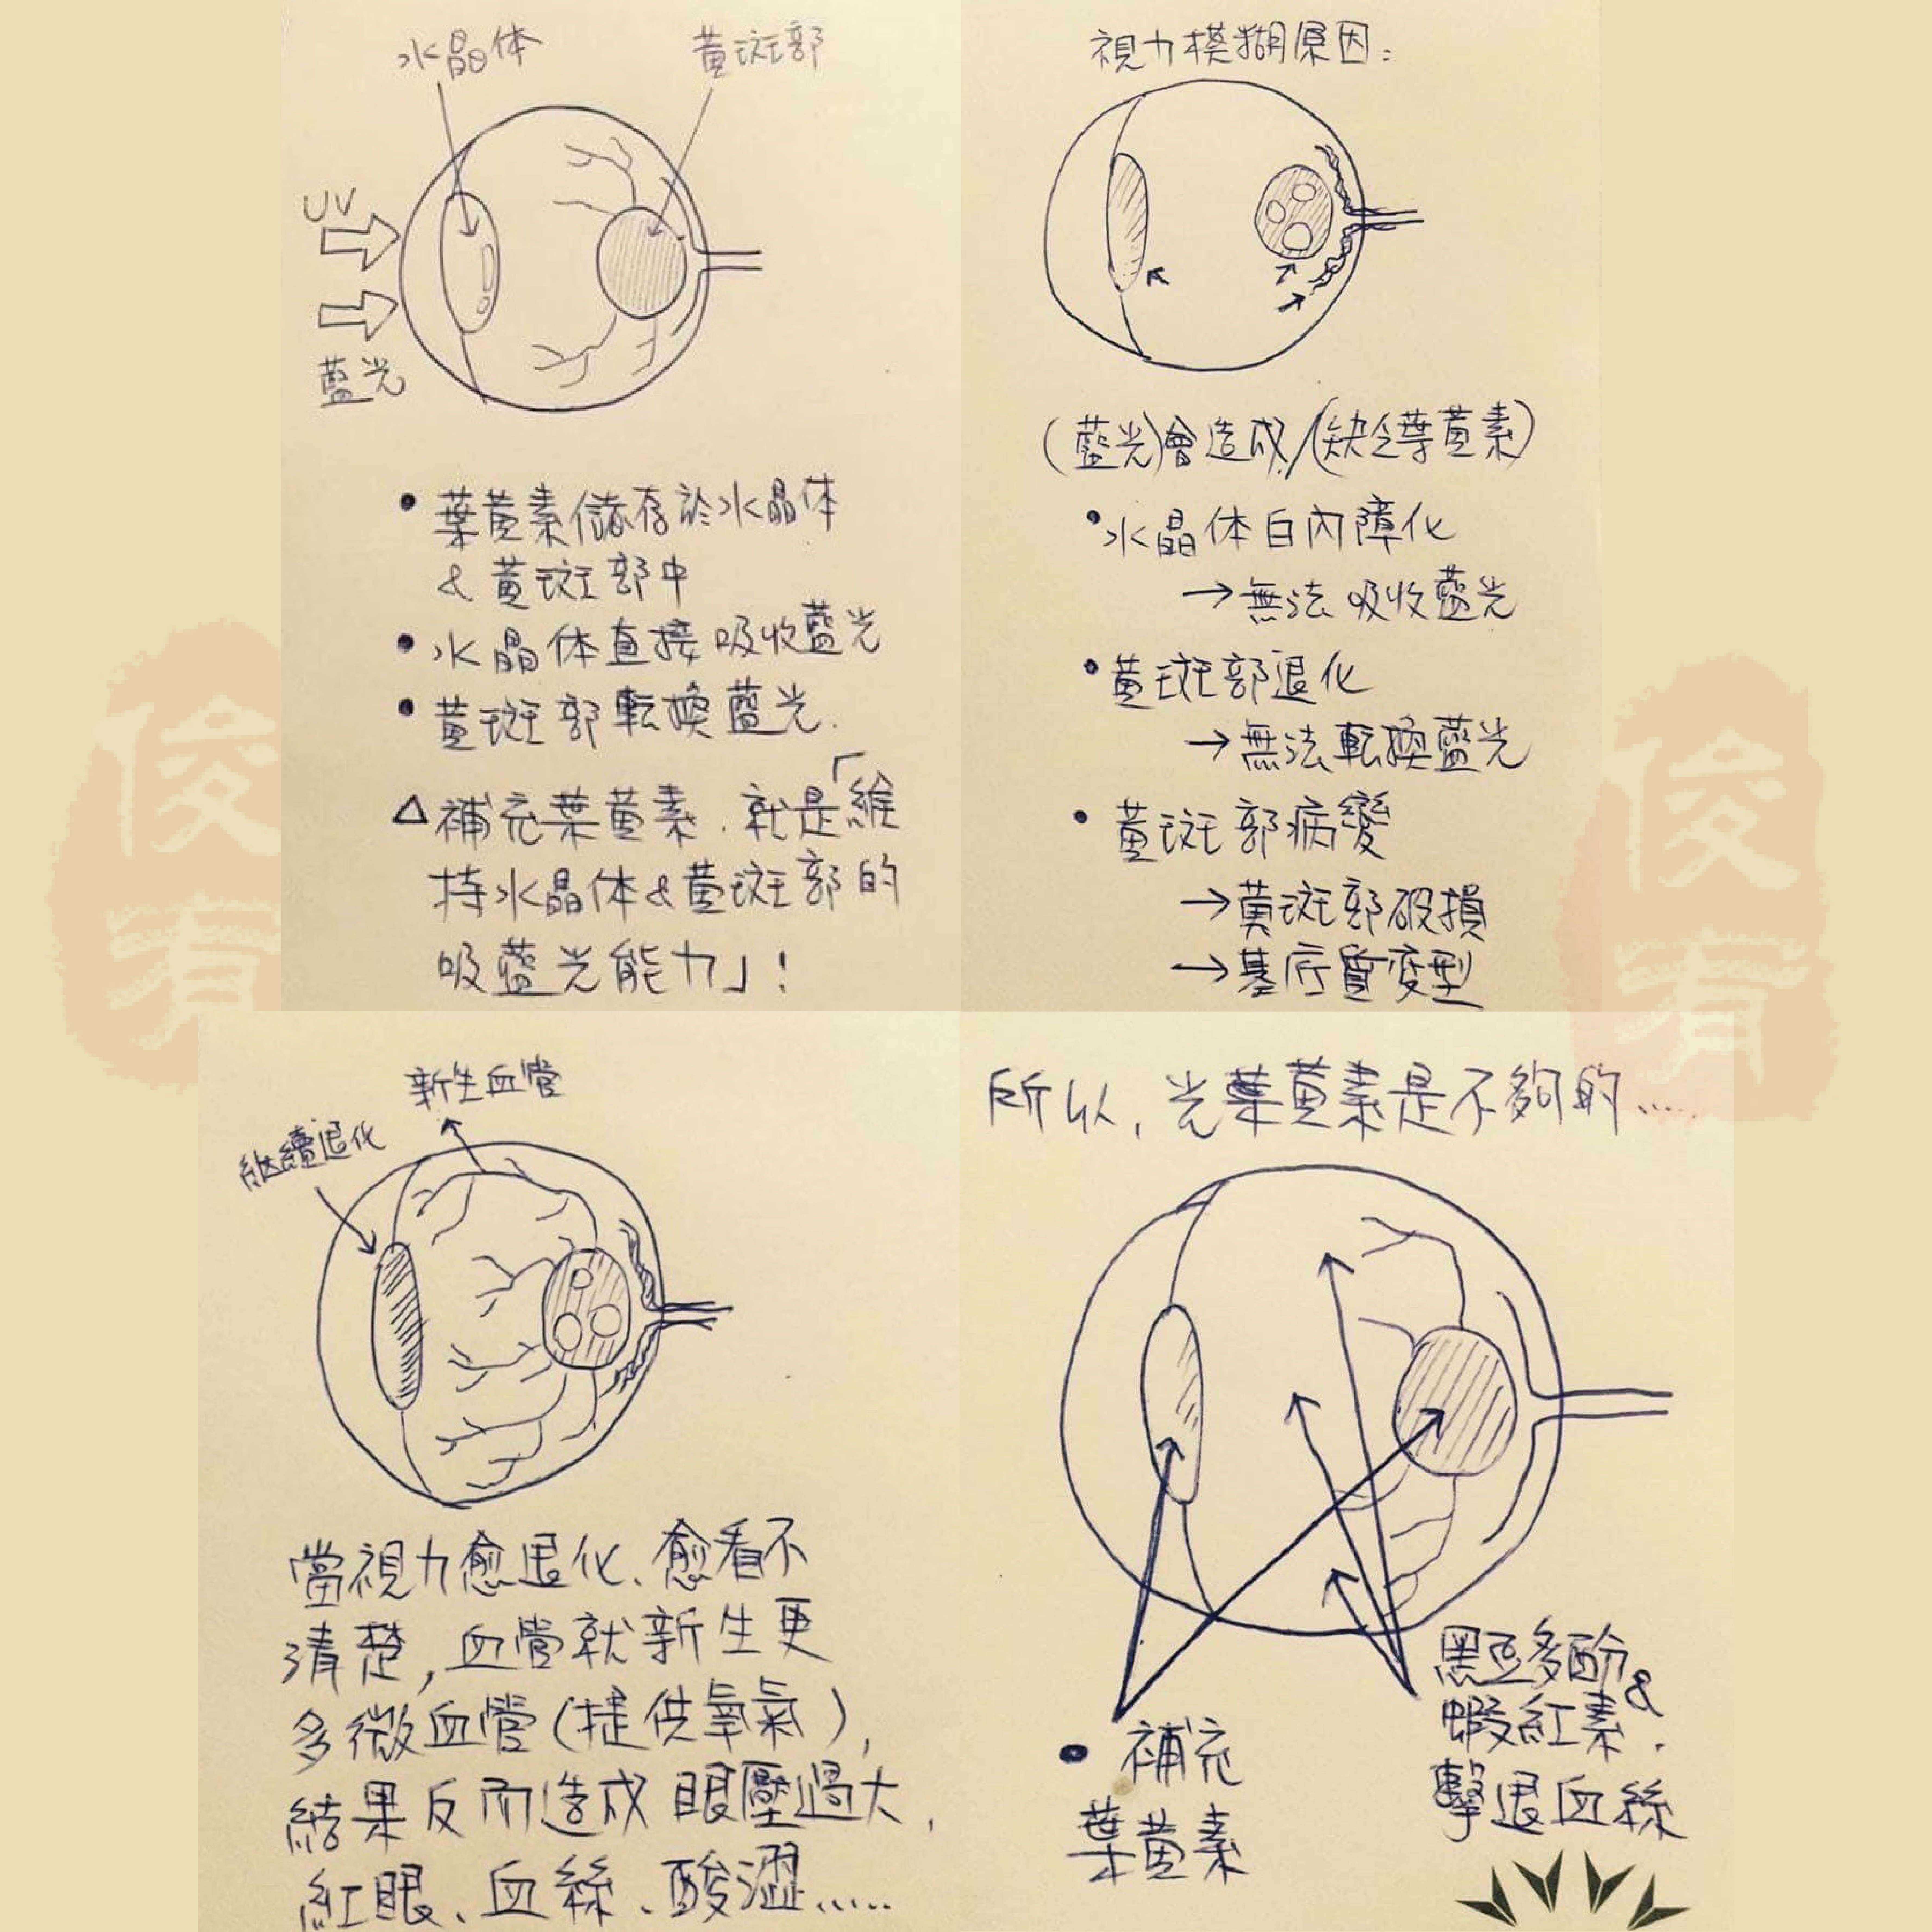 水晶体
黄斑部
UV
藍光
• 葉黄素儲存於水晶体
& 黄斑部中
• 水晶体直接吸收藍光
• 黄斑部転換藍光.
△補充葉黄素.就是「維
持水晶体&黄斑部的
吸藍光能力」!
視力模糊原因:
(藍光)會造成/(缺乏葉黄素)
•水晶体白內障化
→無法吸收藍光
•黄斑部退化
→無法転換藍光
•黄斑部病變
→黄斑部破損
→基底質変型
新生血管
継續退化
當視力愈退化、愈看不
清楚,血管就新生更
多微血管(提供氧氣),
結果反而造成眼壓過大,
紅眼、血絲、酸澀.....
所以,光葉黄素是不夠的.....
• 補充
葉黄素
黑豆多酚&
蝦紅素,
擊退血絲
俊
有
俊
有